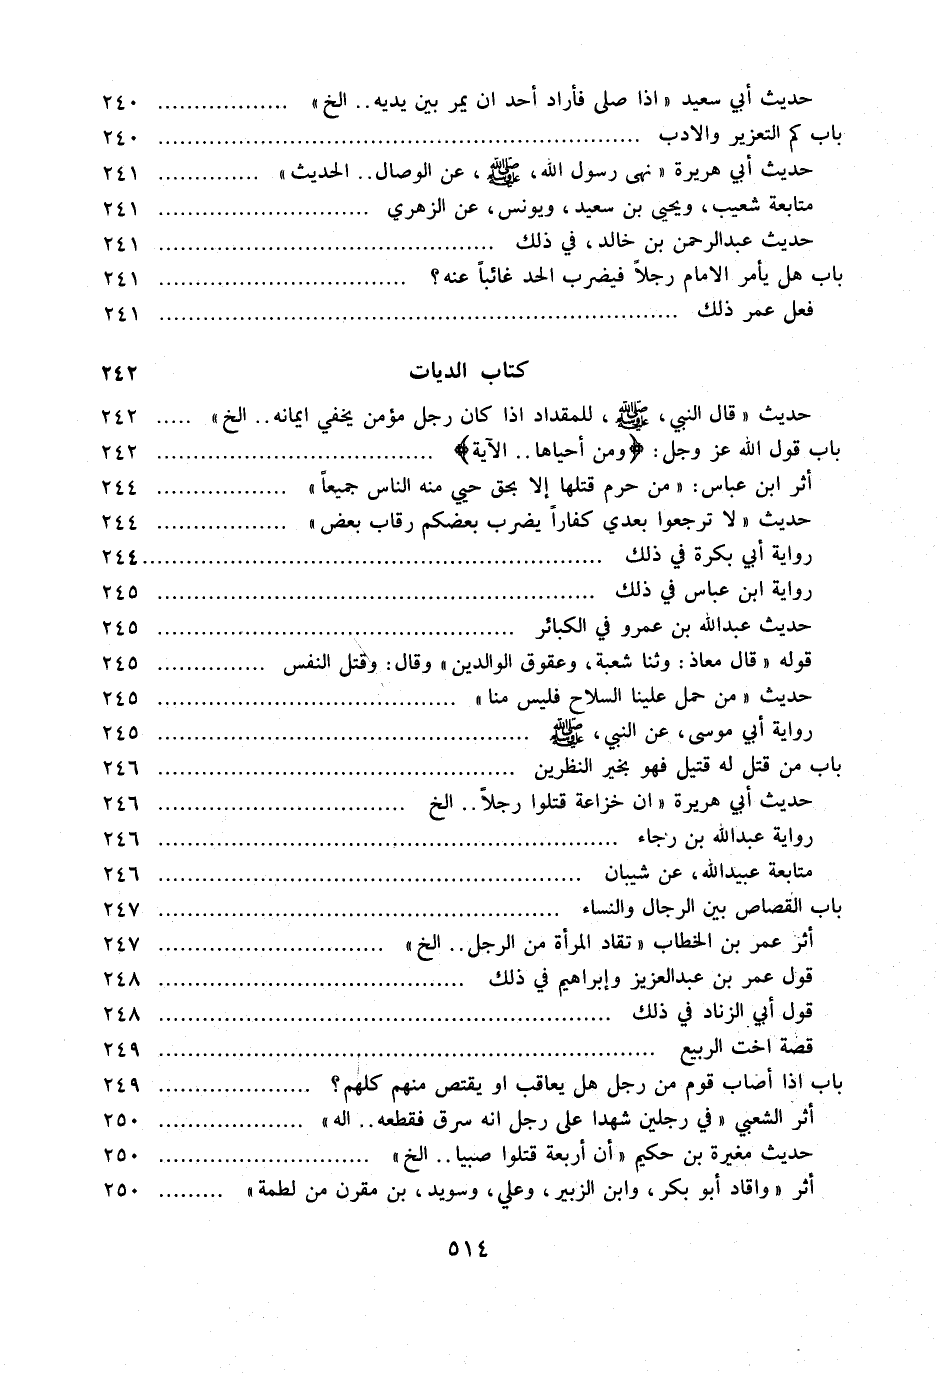 حديث أبي سعيد « اذا صلى فأراد أحد ان يمر بين يديه . . الخ » .................. ٢٤٠
باب كم التعزير والادب ................................................................ ٢٤٠
حديث أبي هريرة « نهى رسول الله، ﷺ ، عن الوصال . . الحديث » .............. ٢٤١
متابعة شعيب، ويحيى بن سعيد، ويونس، عن الزهري ............................. ٢٤١
حديث عبدالرحمن بن خالد، في ذلك .............................................. ٢٤١
باب هل يأمر الامام رجلاً فيضرب الحد غائباً عنه؟ .................................. ٢٤١
فعل عمر ذلك ....................................................................... ٢٤١
كتاب الديات ٢٤٢
حديث « قال النبي، ﷺ ، للمقداد اذا كان رجل مؤمن يخفي ايمانه . . الخ » ..... ٢٤٢
باب قول الله عز وجل: ﴿ومن أحياها . . الآية﴾ ...................................... ٢٤٢
أثر ابن عباس: « من حرم قتلها إلا بحق حيي منه الناس جميعاً » .................. ٢٤٤
حديث « لا ترجعوا بعدي كفاراً يضرب بعضكم رقاب بعض » .................. ٢٤٤
رواية أبي بكرة في ذلك ............................................................... ٢٤٤
رواية ابن عباس في ذلك ............................................................ ٢٤٥
حديث عبدالله بن عمرو في الكبائر ................................................. ٢٤٥
قوله « قال معاذ: وثنا شعبة، وعقوق الوالدين » وقال: وقتل النفس ............... ٢٤٥
حديث « من حمل علينا السلاح فليس منا » ......................................... ٢٤٥
رواية أبي موسى، عن النبي، ﷺ .................................................... ٢٤٥
باب من قتل له قتيل فهو بخير النظرين ................................................. ٢٤٦
حديث أبي هريرة « ان خزاعة قتلوا رجلاً . . الخ .................................. ٢٤٦
رواية عبدالله بن رجاء ............................................................... ٢٤٦
متابعة عبيدالله، عن شيبان .......................................................... ٢٤٦
باب القصاص بين الرجال والنساء ....................................................... ٢٤٧
أثر عمر بن الخطاب « تقاد المرأة من الرجل . . الخ » ............................... ٢٤٧
قول عمر بن عبدالعزيز وإبراهيم في ذلك .......................................... ٢٤٨
قول أبي الزناد في ذلك .............................................................. ٢٤٨
قصة اخت الربيع .................................................................... ٢٤٩
باب اذا أصاب قوم من رجل هل يعاقب او يقتص منهم كلهم؟ ..................... ٢٤٩
أثر الشعبي « في رجلين شهدا على رجل انه سرق فقطعه . . اله » .................... ٢٥٠
حديث مغيرة بن حكيم « أن أربعة قتلوا صبيا . . الخ » ............................. ٢٥٠
أثر « واقاد أبو بكر، وابن الزبير، وعلي، وسويد، بن مقرن من لطمة » ......... ٢٥٠
٥١٤